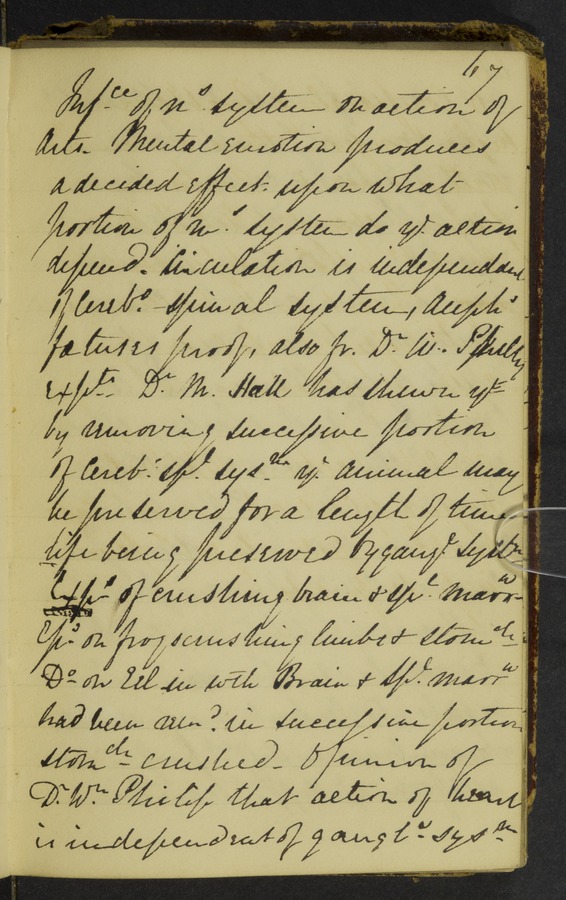 67
Infce of ns system on action of
Arts. Mental Emotion produces
a decided effect. upon what
portion of ns system do ye action
depend. Circulation is independent
of Cerebo-spinal system, Aceph's
fœtuses proof, also fr. Dr W. Philip
Expts. Dr M. Hall has shewn yt
by removing successive portion
of Cereb: spl sysm ye animal may
be preserved for a length of time
life being preserved by gangc system
Exps of crushing brain & spl marrw
Eps on frogs crushing limbs & stomch
Do on Eel in wch Brain & spl marrw
had been remd in successive portion
stomch crushed. Opinion of
Dr Wn Philip that action of heart
is independent of gangle sysm